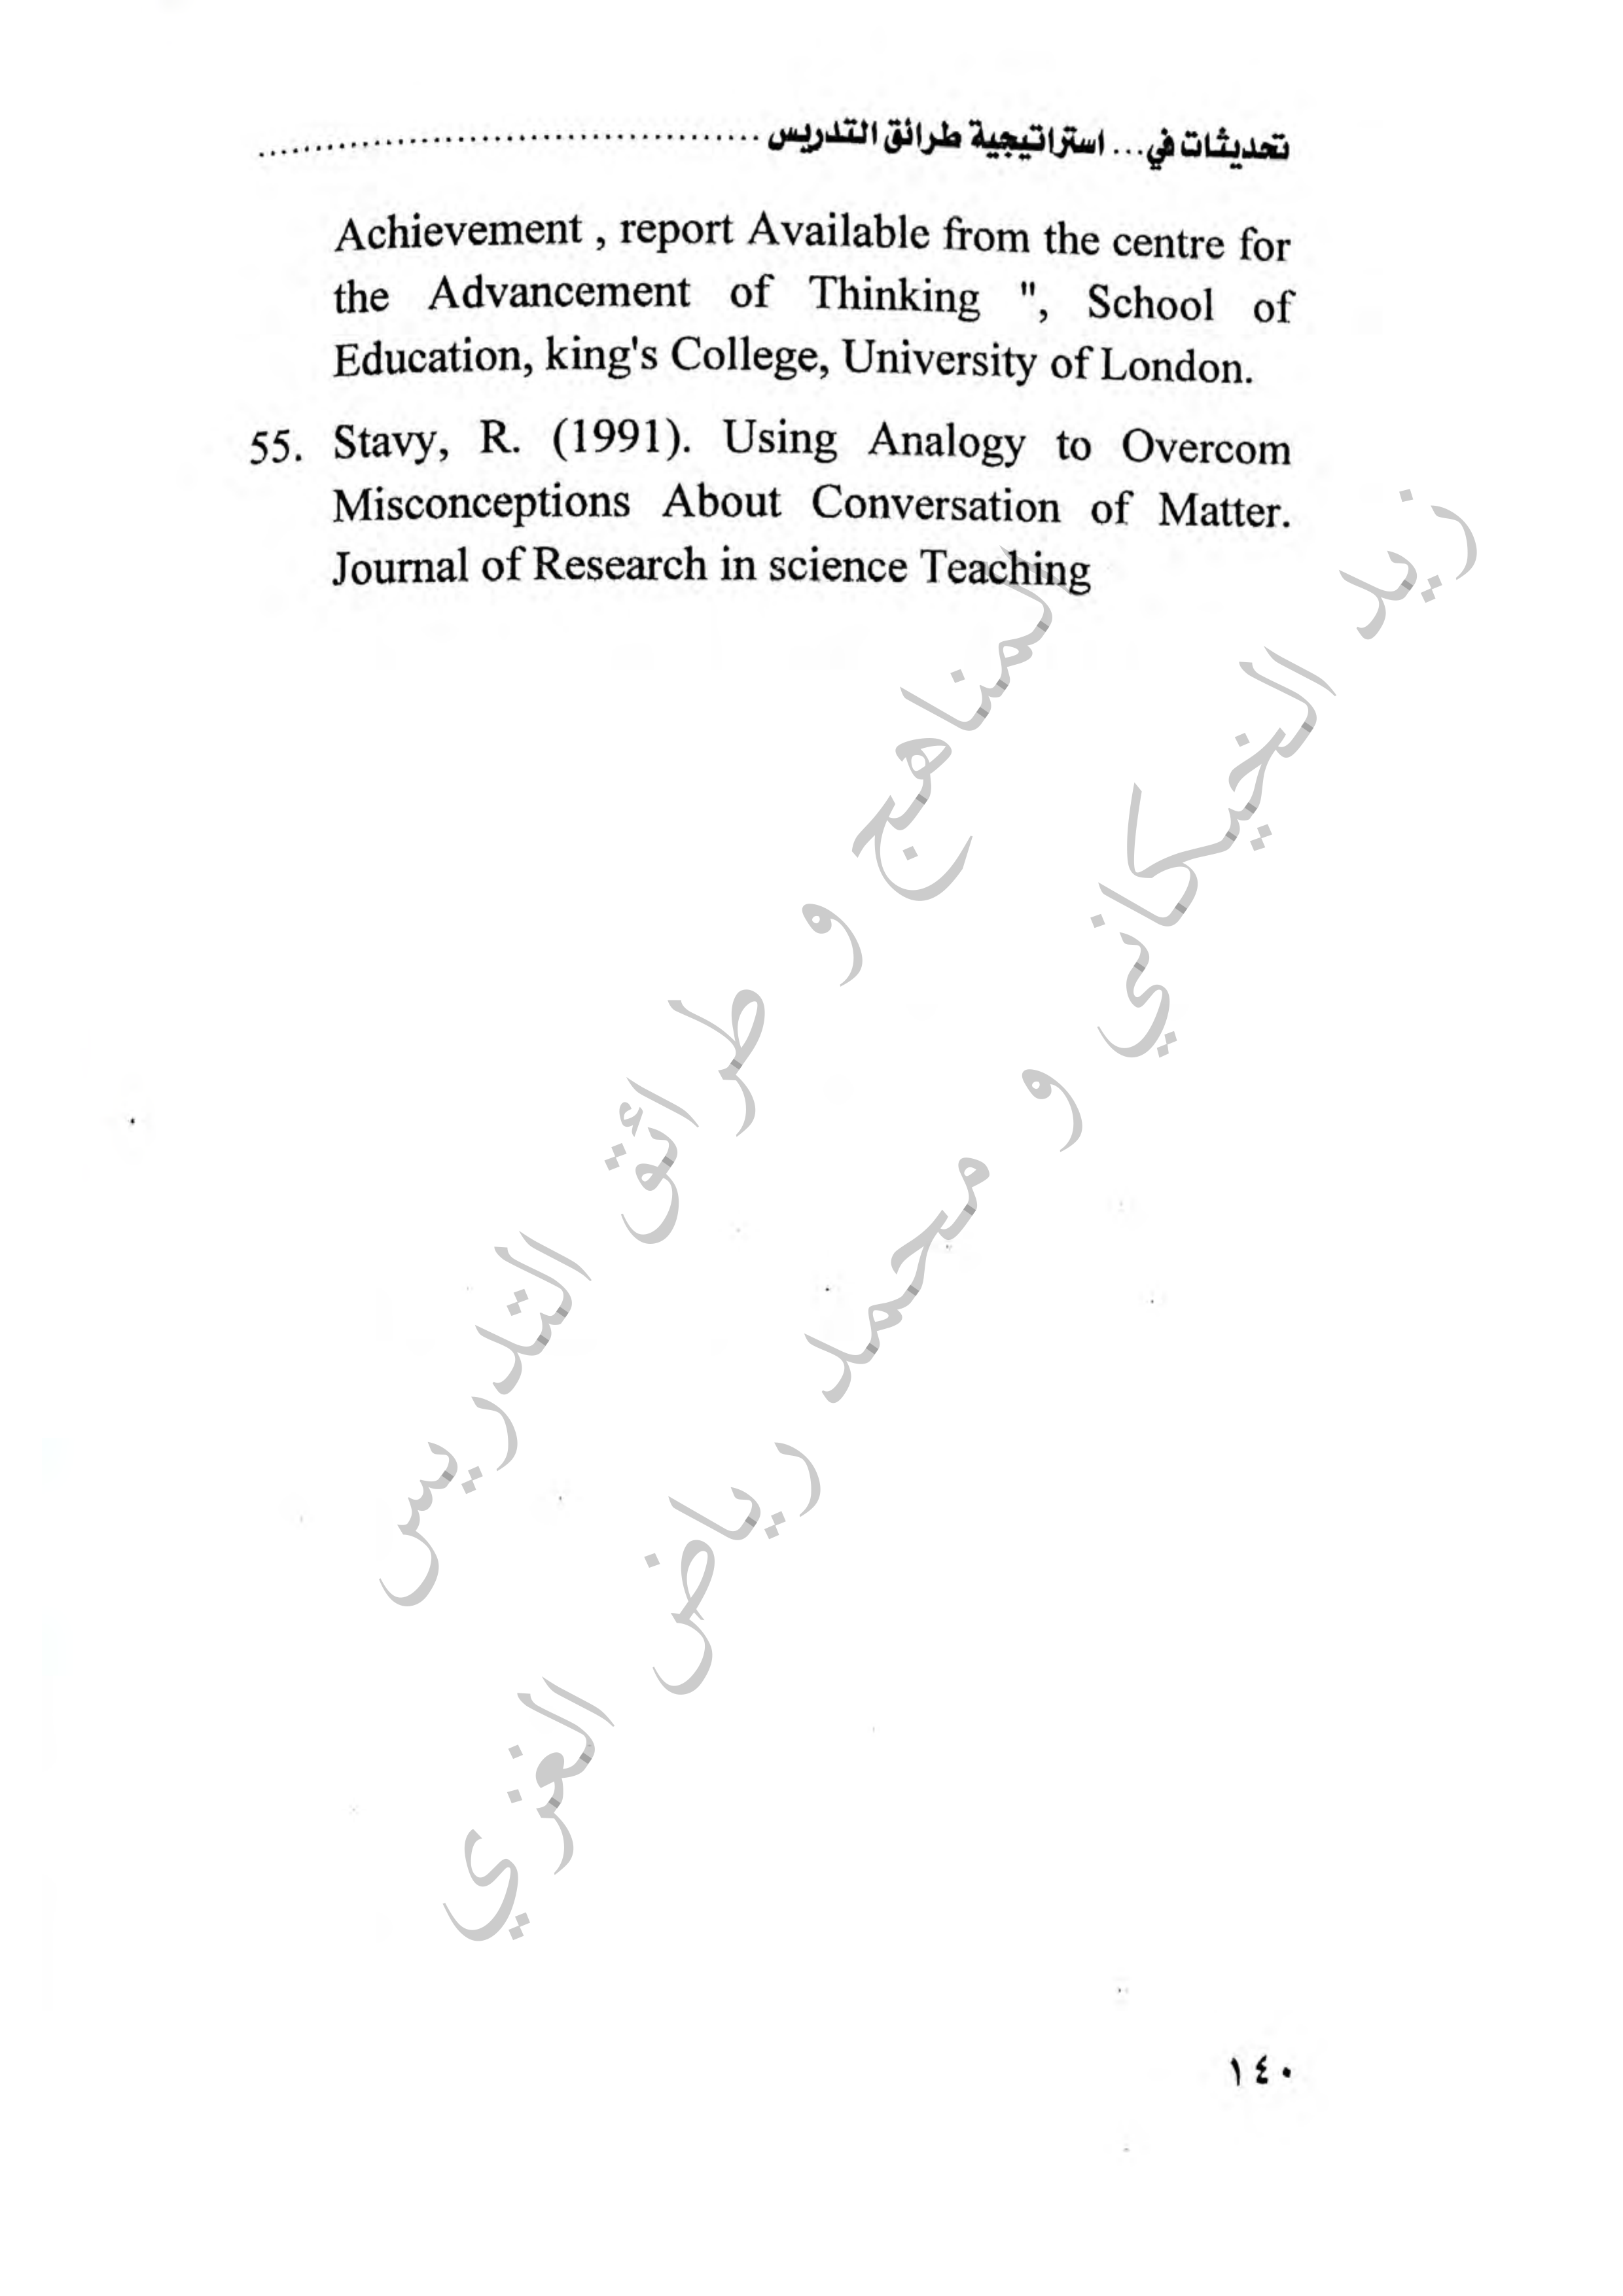 تحديثات في... استراتيجية طرائق التدريس ............................................
Achievement , report Available from the centre for
the Advancement of Thinking ", School of
Education, king's College, University of London.
55. Stavy, R. (1991). Using Analogy to Overcom
Misconceptions About Conversation of Matter.
Journal of Research in science Teaching
المناهج و طرائق التدريس
زيد الخيكاني و محمد رياض الغزي
١٤٠